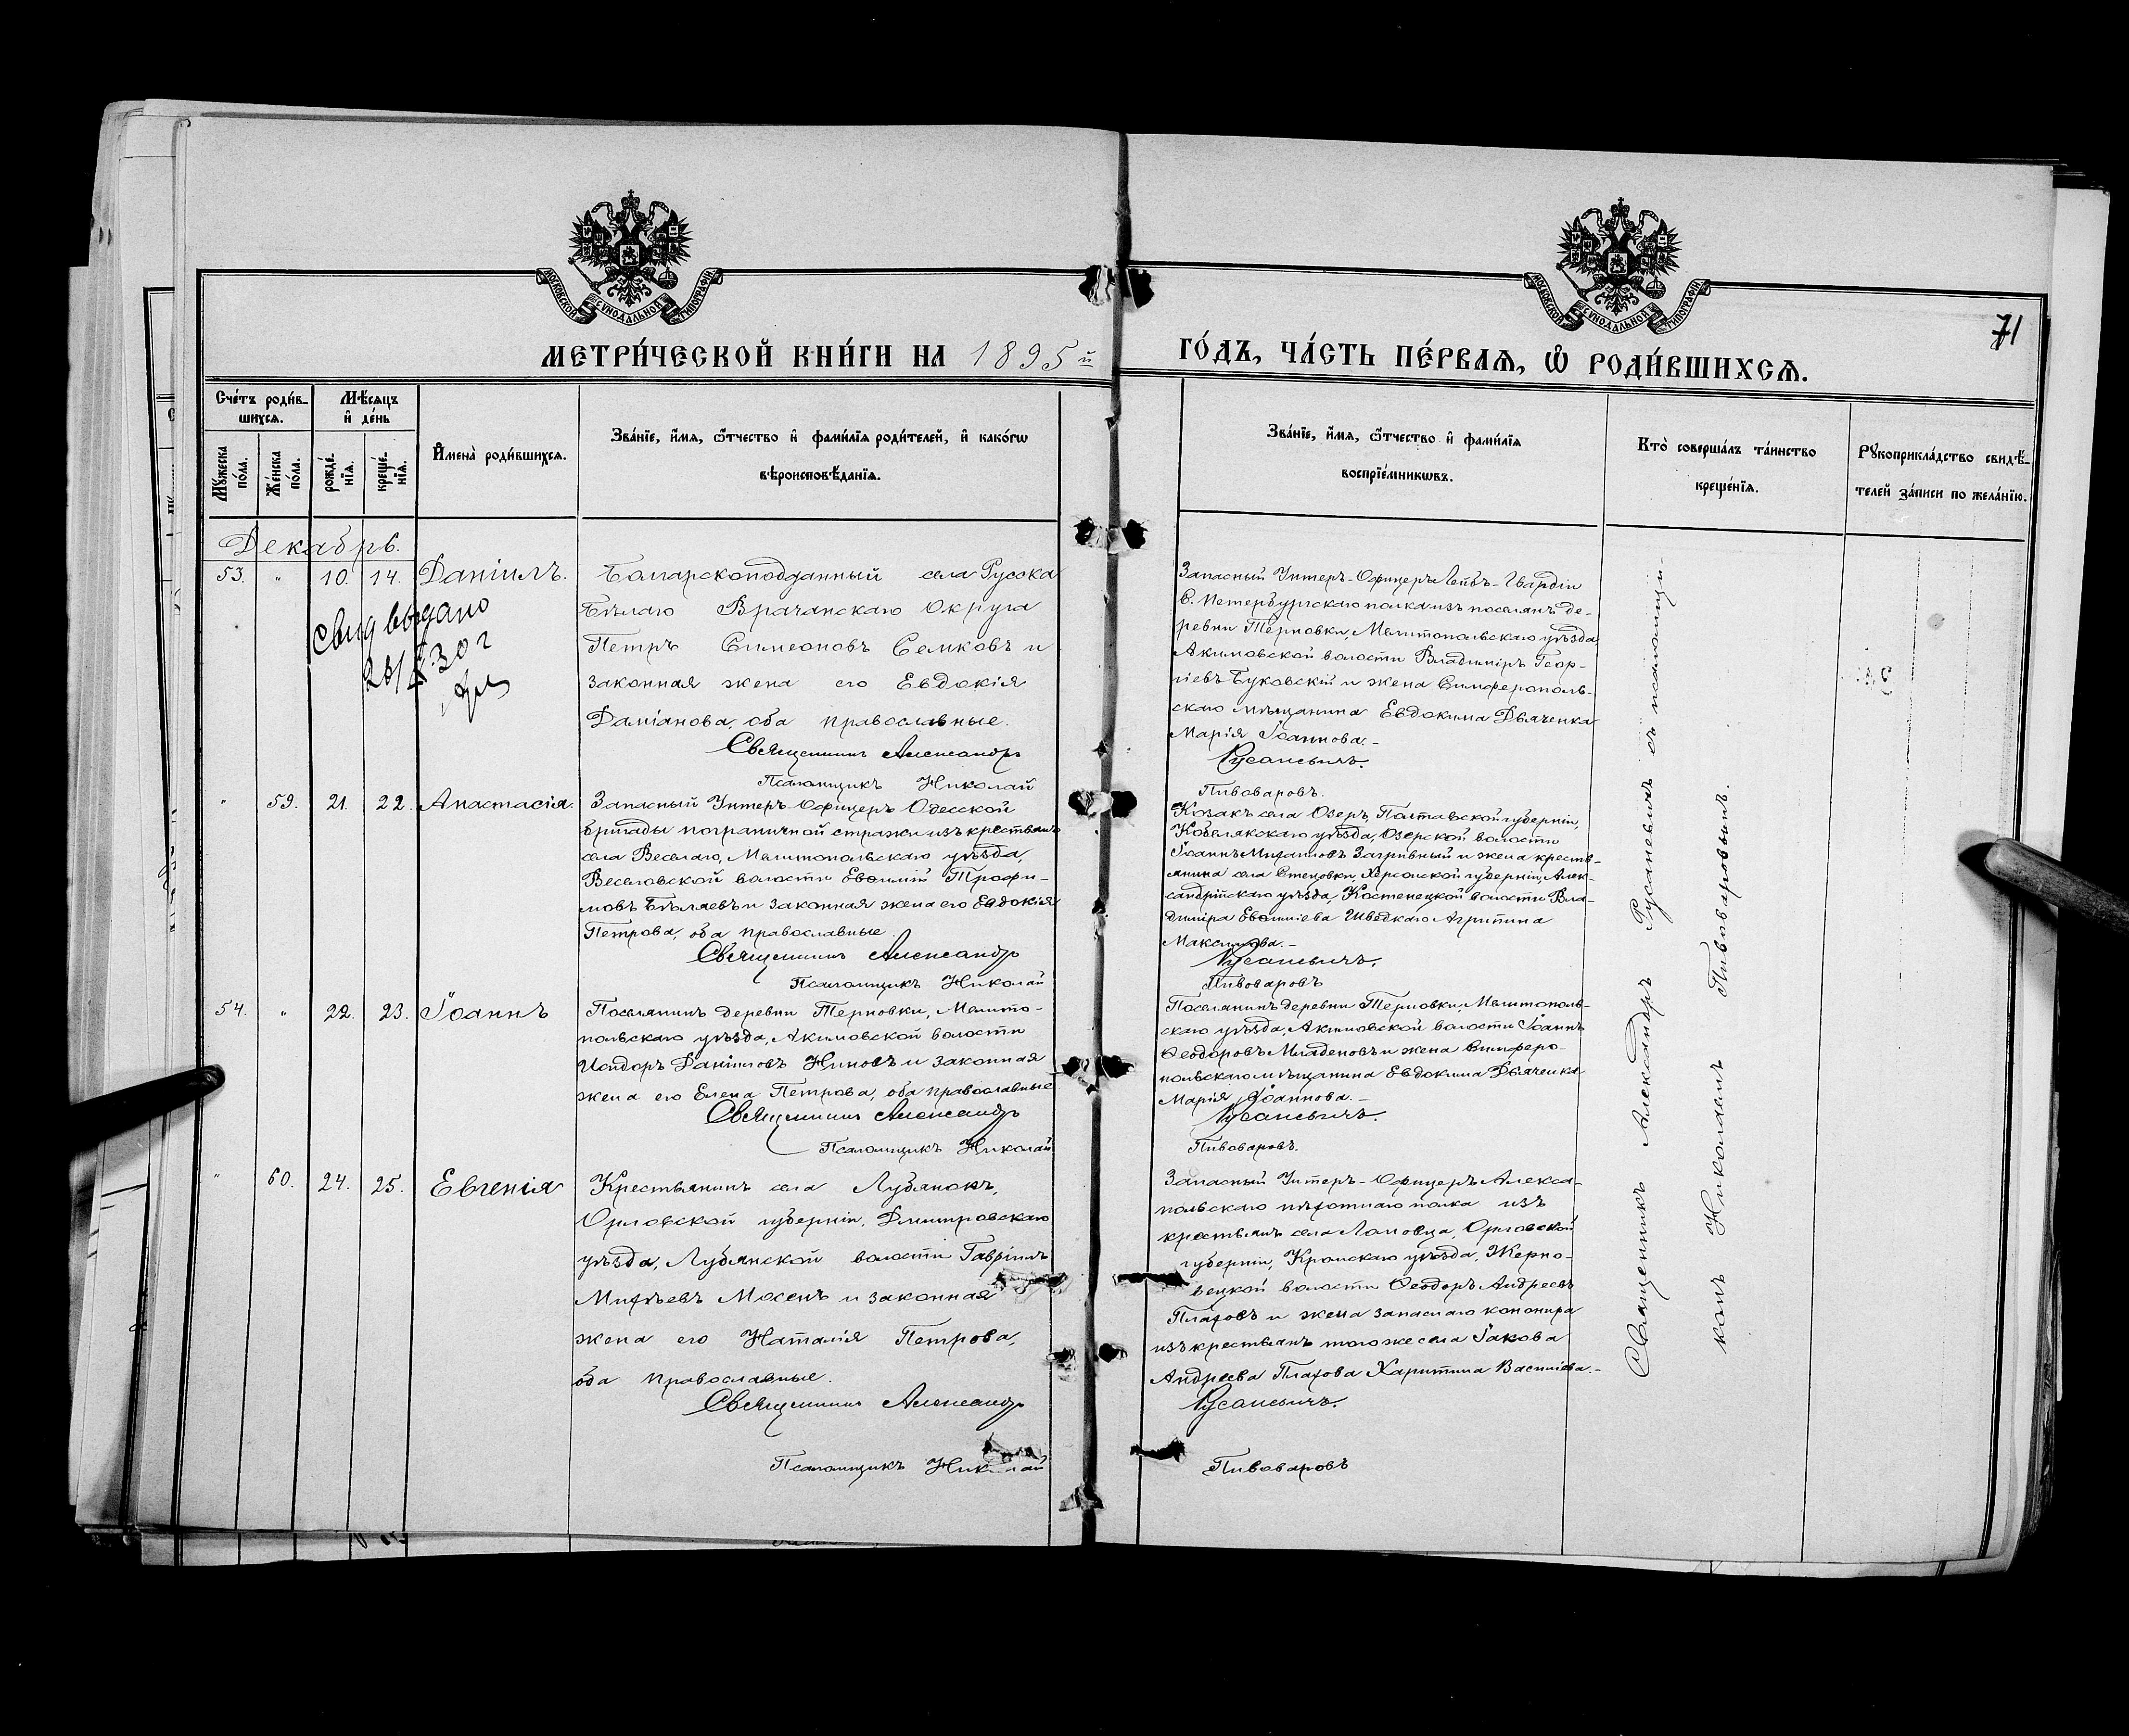 МОСКОВСКОЙ СѴНОДАЛЬНОЙ ТИПОГРАФІИ
МОСКОВСКОЙ СѴНОДАЛЬНОЙ ТИПОГРАФІИ
71
МЕТРИ́ЧЕСКОЙ КНИ́ГИ НА 1895й
ГО́ДЪ, ЧА́СТЬ ПЕ́РВАѦ, Ѡ҆ РОДИ́ВШИХСѦ.
Сче́тъ роди́в-
шихсѧ.
Мꙋ́жеска по́ла.
Же́нска по́ла.
Мѣ́сѧцъ
и҆ де́нь
рожде́-
нїѧ.
креще́-
нїѧ.
И҆мена̀ роди́вшихсѧ.
Зва́нїе, и҆́мѧ, ѻ҆́тчество и҆ фами́лїѧ роди́телей, и҆ како́гѡ
вѣроисповѣ́данїѧ.
Зва́нїе, и҆́мѧ, ѻ҆́тчество и҆ фами́лїѧ
воспрїе́мникѡвъ.
Кто̀ соверша́лъ та́инство
креще́нїѧ.
Рꙋкоприкла́дство свидѣ́-
телей за́писи по жела́нїю.
Декабрь.
53. " 10. 14. Даніилъ.
Свид выдано
Болгарскоподданный села Русока
Бѣлаго Врачанскаго Округа
Петръ Симеоновъ Семковъ и
законная жена его Евдокія
Даміанова, оба православные.
Священникъ Александръ
Псаломщикъ Николай
Запасный Унтеръ-Офицеръ Лейбъ-Гвардіи
С. Петербургскаго полка изъ поселянъ де-
ревни Терновки, Мелитопольскаго уѣзда,
Акимовской волости Владиміръ Геор-
гіевъ Буковскій и жена Симферополь-
скаго мѣщанина Евдокима Дьяченка
Марія Іоаннова.-
Русаневичъ.
Пивоваровъ.
" 59. 21. 22. Анастасія.
Запасный Унтеръ-Офицеръ Одесской
бригады пограничной стражи изъ крестьянъ
села Веселаго, Мелитопольскаго уѣзда,
Веселовской волости Евѳимій Трофи-
мовъ Бѣляевъ и законная жена его Евдокія
Петрова, оба православные.
Священникъ Александръ
Псаломщикъ Николай
Козакъ села Озеръ, Полтавской губерніи,
Кобелякскаго уѣзда, Озерской волости
Іоаннъ Михаиловъ Загривный и жена кресть-
янина села Стецовки, Херсонской губерніи, Алек-
сандрійскаго уѣзда, Костенецкой волости Вла-
диміра Евѳиміева Шведкаго Агрипина
Максимова.-
Русаневичъ.
Пивоваровъ
54. " 22. 23. Іоаннъ
Поселянинъ деревни Терновки, Мелито-
польскаго уѣзда, Акимовской волости
Исидоръ Даніиловъ Ниновъ и законная
жена его Елена Петрова, оба православные
Священникъ Александръ
Псаломщикъ Николай
Поселянинъ деревни Терновки, Мелитополь-
скаго уѣзда, Акимовской волости Іоаннъ
Ѳеодоровъ Младеновъ и жена Симферо-
польскаго мѣщанина Евдокима Дьяченка
Марія Іоаннова.-
Русаневичъ.
Пивоваровъ.
" 60. 24. 25. Евгенія
Крестьянинъ села Лубянокъ,
Орловской губерніи, Дмитровскаго
уѣзда, Лубянской волости Гавріилъ
Михѣевъ Мосенъ и законная
жена его Наталія Петрова,
оба православные.
Священникъ Александръ
Псаломщикъ Николай
Запасный Унтеръ-Офицеръ Алекса-
польскаго пѣхотнаго полка изъ
крестьянъ села Ломовца, Орловской
губерніи, Кромскаго уѣзда, Жерно-
вецкой волости Ѳеодоръ Андреевъ
Плаховъ и жена запаснаго канонира
изъ крестьянъ того же села Іакова
Андреева Плахова Харитина Васильева.-
Русаневичъ.
Пивоваровъ
Священникъ Александръ Русаневичъ съ псаломщи-
комъ Николаемъ Пивоваровымъ.